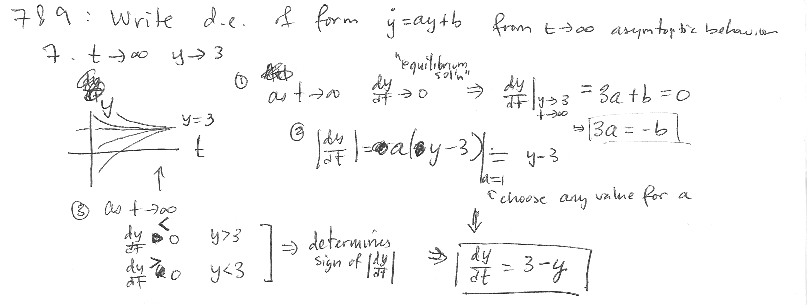 7 & 9 : Write d.e. of form ẏ = ay + b from t→∞ asymptotic behavior
7. t→∞ y→3
① as t→∞ dy/dt → 0 "equilibrium sol'n" ⇒ dy/dt |y→3 t→∞ = 3a + b = 0
⇒ 3a = -b
y
y=3
t
② |dy/dt| = a(y-3)|a=1 = y-3
↑ choose any value for a
③ as t→∞
dy/dt < 0 y>3
dy/dt > 0 y<3
⇒ determines sign of |dy/dt|
⇒ dy/dt = 3-y